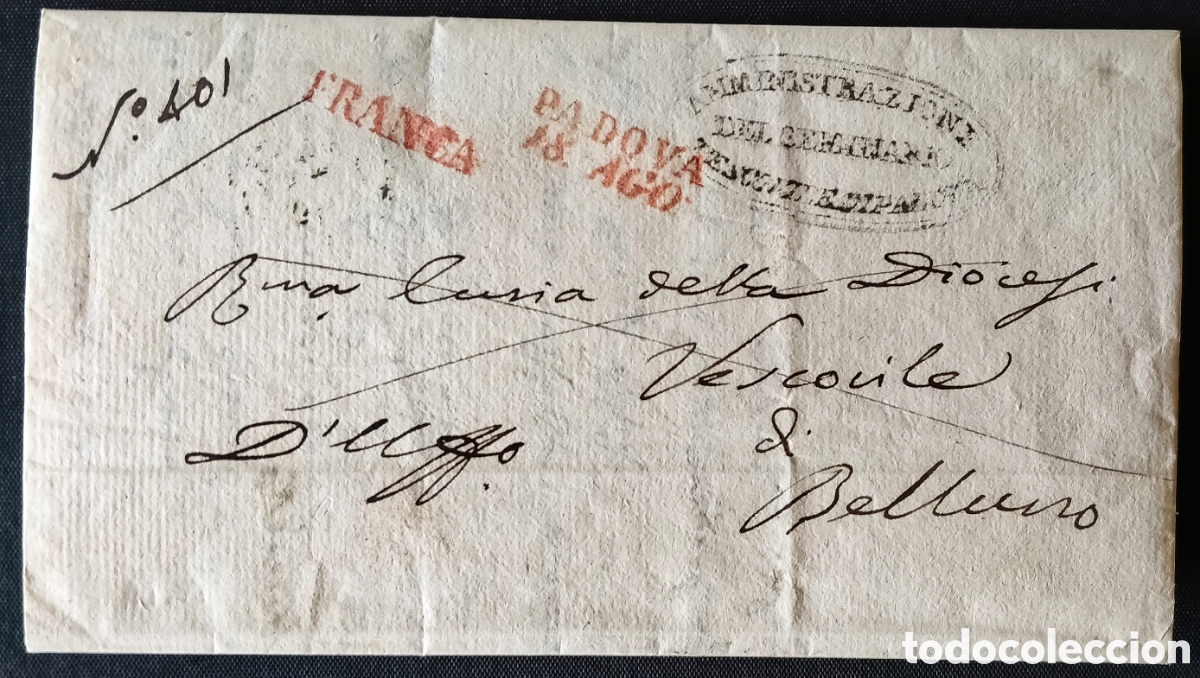 N.o 401
FRANCA
PADOVA
18 AGO
AMMINISTRAZIONE
DEL SEMINARIO
Rma Curia della Diocesi
Vescovile
D'Uffo
di
Belluno
todocoleccion